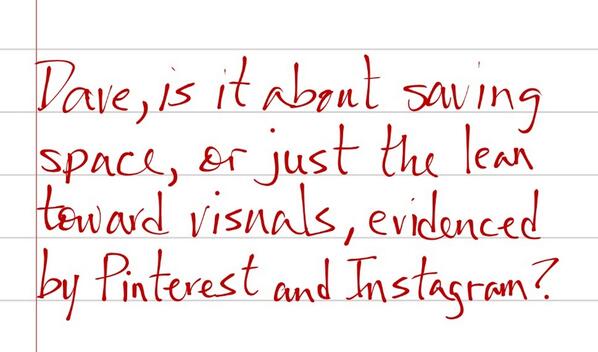 Dave, is it about saving
space, or just the lean
toward visuals, evidenced
by Pinterest and Instagram?